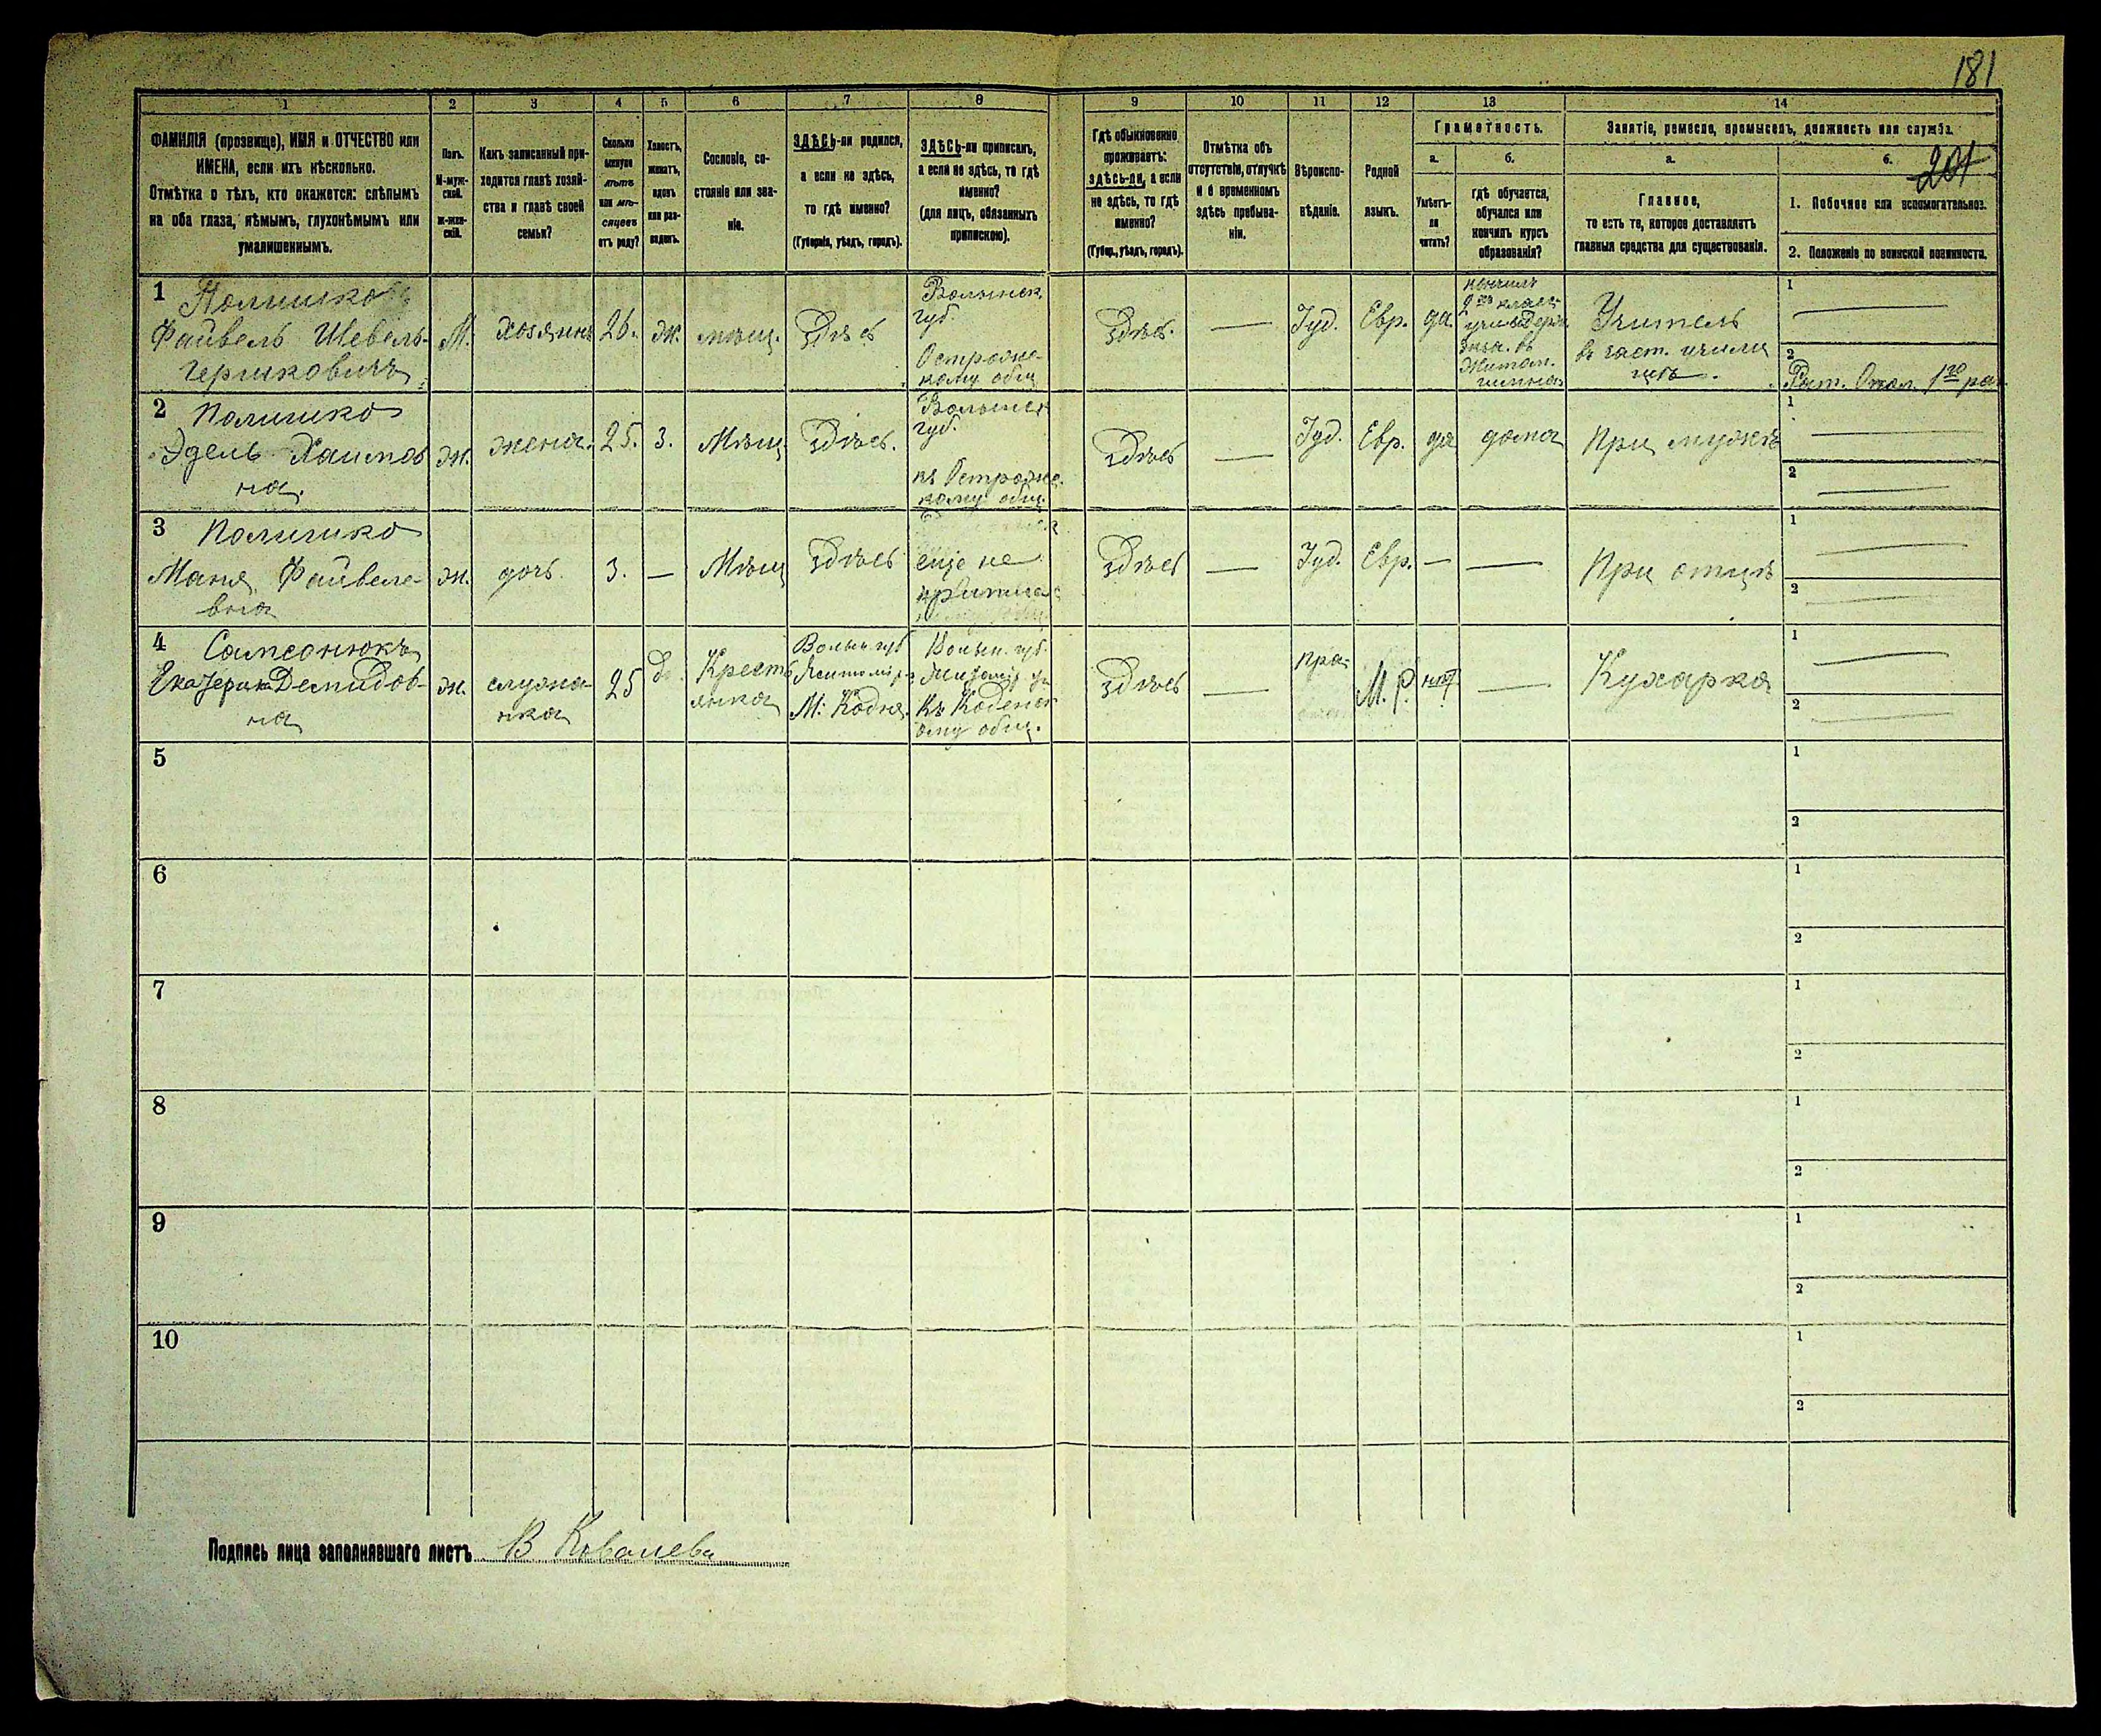 181
1
2
3
4
5
6
7
8
9
10
11
12
13
14
ФАМИЛІЯ (прозвище), ИМЯ и ОТЧЕСТВО или
ИМЕНА, если ихъ нѣсколько.
Отмѣтка о тѣхъ, кто окажется: слѣпымъ
на оба глаза, нѣмымъ, глухонѣмымъ или
умалишеннымъ.
Полъ.
М-муж-
ской.
Ж-жен-
скій.
Какъ записанный при-
ходится главѣ хозяй-
ства и главѣ своей
семьи?
Сколько
минуло
лѣтъ
или мѣ-
сяцевъ
отъ роду?
Холостъ,
женатъ,
вдовъ
или раз-
веденъ.
Сословіе, со-
стояніе или зва-
ніе.
ЗДѢСЬ-ли родился,
а если не здѣсь,
то гдѣ именно?
(Губернія, уѣздъ, городъ).
ЗДѢСЬ-ли приписанъ,
а если не здѣсь, то гдѣ
именно?
(для лицъ, обязанныхъ
припискою).
Гдѣ обыкновенно
проживаетъ:
здѣсь-ли, а если
не здѣсь, то гдѣ
именно?
(Губер., уѣздъ, городъ).
Отмѣтка объ
отсутствіи, отлучкѣ
и о временномъ
здѣсь пребыва-
ніи.
Вѣроиспо-
вѣданіе.
Родной
языкъ.
Грамотность.
а.
Умѣетъ-
ли
читать?
б.
гдѣ обучается,
обучался или
кончилъ курсъ
образованія?
Занятіе, ремесло, промыселъ, должность или служба.
а.
Главное,
то есть то, которое доставляетъ
главныя средства для существованія.
б.
201
1. Побочное или вспомогательное.
2. Положеніе по воинской повинности.
1
Полишко
Файвель Шевель-
Гершковичъ
М.
хозяинъ
26.
ж.
мѣщ.
Здѣсь
Волынск.
губ.
Острожс-
кому общ
Здѣсь.
Іуд.
Евр.
да.
въ
Учитель
въ част. учили
щѣ.
1
2
Рат. Опол. 1го раз.
2
Полишко
Эдель Хаимов
на.
ж.
жена.
25.
3.
Мѣщ.
Здѣсь.
Волынск
губ.
къ Острожс-
кому общ.
Здѣсь
Іуд.
Евр.
да
дома
При мужѣ
1
2
3
Полишко
Маня Файвеле-
вна
ж.
дочь.
3.
Мѣщ
Здѣсь
еще не
приписа
Здѣсь
Іуд.
Евр.
При отцѣ
1
2
4
Самсонюкъ
Екатерина Демидов-
на
ж.
служа-
нка
25
Крестъ
янка
Волын. губ
Житомір
М. Кодня.
Волын. губ.
Житомір
Къ Коденс
ому общ.
Здѣсь
пра
М. Р.
нѣт
Кухарка
1
2
5
1
2
6
1
2
7
1
2
8
1
2
9
1
2
10
1
2
Подпись лица заполнявшаго листъ В Ковалева